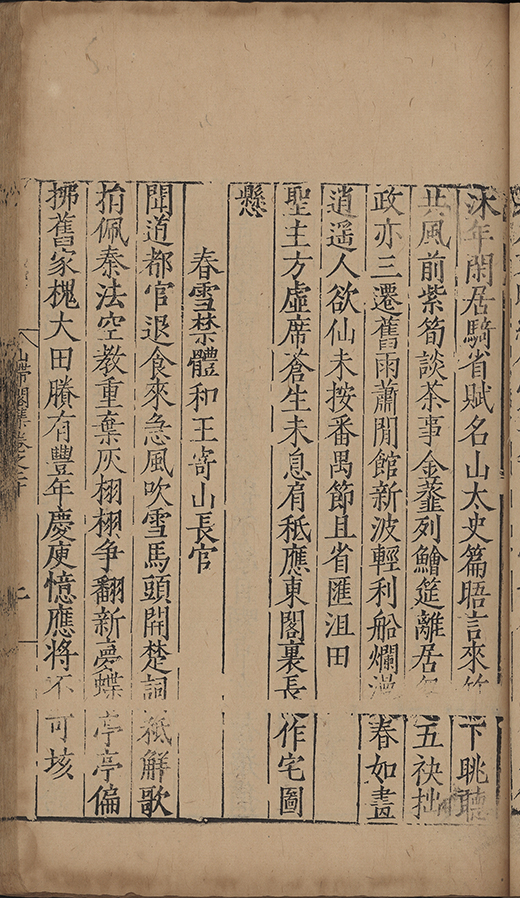 沐年閑居騎省賦名山太史篇晤言來竹下眺聽
共風前紫筍談茶事金虀列鱠筵離居 五袂拙
政亦三遷舊雨蕭閒館新波輕利船爛漫春如畫
逍遥人欲仙未按番禺節且省匯沮田
聖主方虛席蒼生未息肩秪應東閣裏長作宅圖
懸
春雪禁體和王寄山長官
聞道都官退食來急風吹雪馬頭開楚詞秪解歌
捐佩秦法空教重棄灰栩栩争翻新夢蝶亭亭偏
拂舊家槐大田賸有豐年慶更憶應將不可垓
山帶閣集卷之十